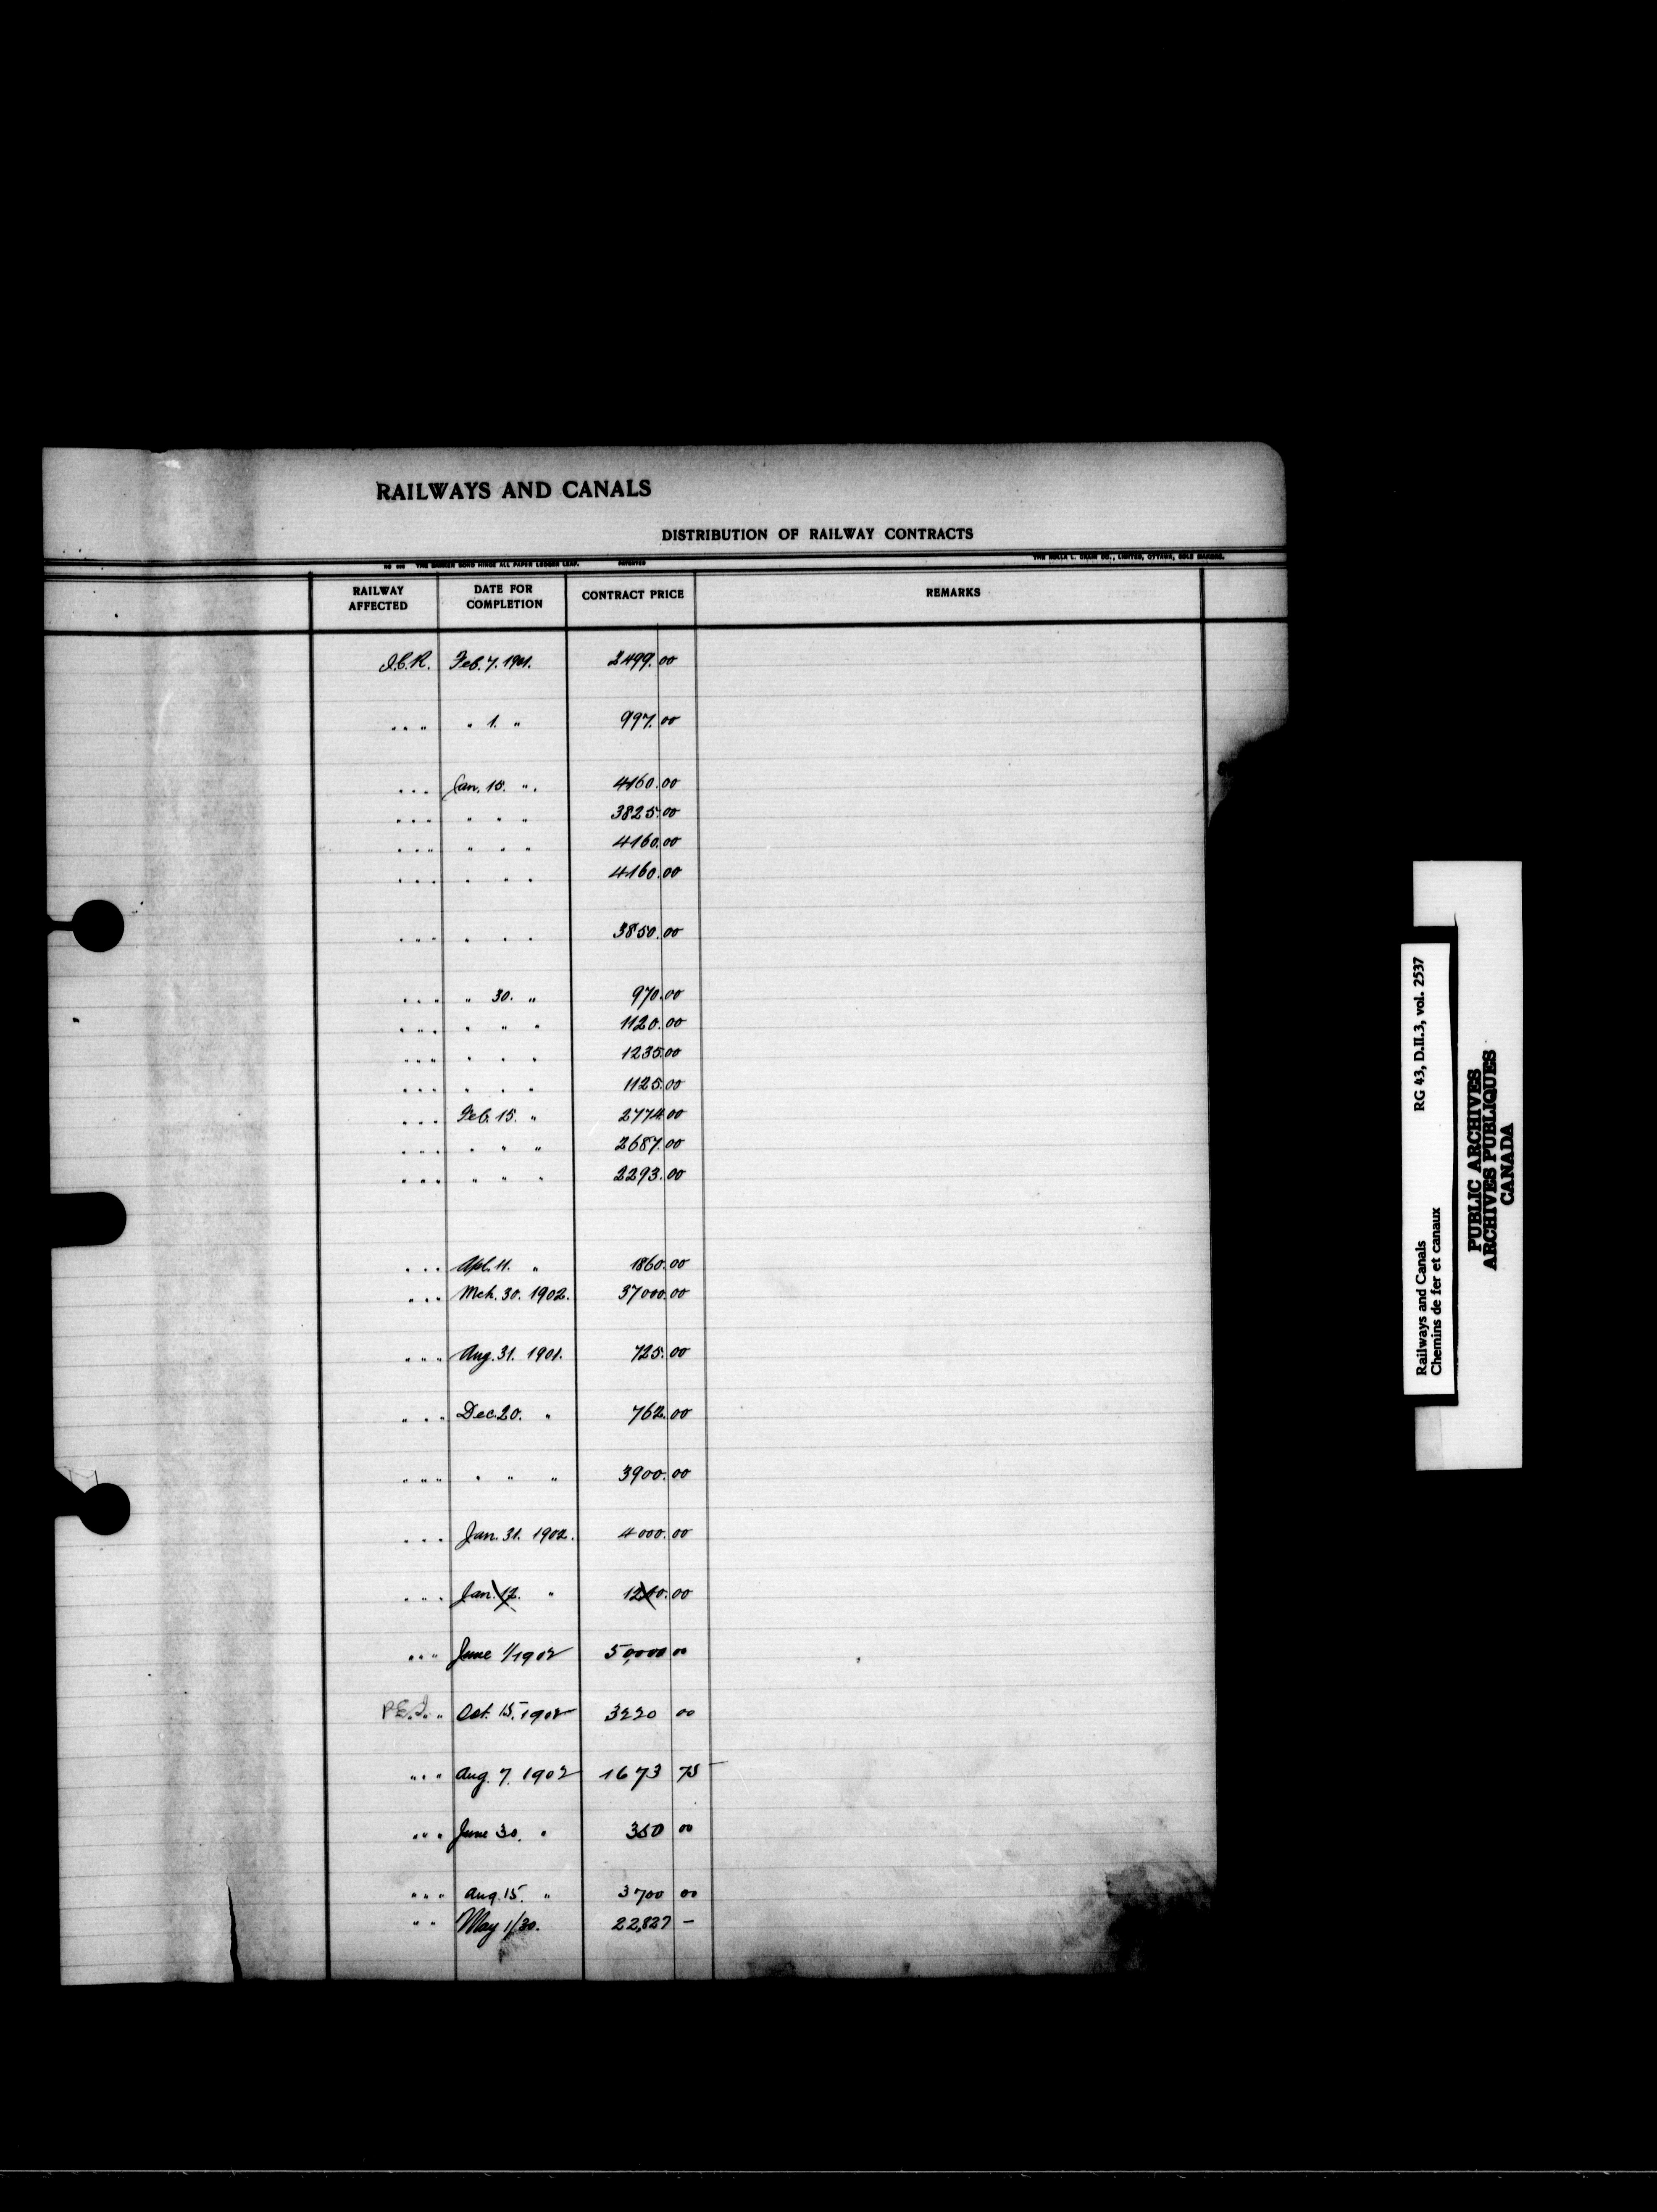 RAILWAYS AND CANALS
DISTRIBUTION OF RAILWAY CONTRACTS
THE ROLLA L. CRAIN CO., LIMITED, OTTAWA, SOLE MAKERS.
THE BARBER BOND HINGE ALL PAPER LEDGER LEAF. PATENTED
RAILWAY AFFECTED DATE FOR COMPLETION CONTRACT PRICE REMARKS
I.C.R. Feb. 7. 1901. 2499.00
" " " " 1. " 997.00
" " " Jan. 15. " 4160.00
" " " " " " 3825.00
" " " " " " 4160.00
" " " " " " 4160.00
" " " " " " 3850.00
" " " " 30. " 970.00
" " " " " " 1120.00
" " " " " " 1235.00
" " " " " " 1125.00
" " " Feb. 15. " 2774.00
" " " " " " 2687.00
" " " " " " 2293.00
" " " Apl. 11. " 1860.00
" " " Mch. 30. 1902. 37000.00
" " " Aug. 31. 1901. 725.00
" " " Dec. 20. " 762.00
" " " " " " 3900.00
" " " Jan. 31. 1902. 4000.00
" " " Jan. 12. " 1200.00
" " " June 1/1902 50,000 00
P.E.I. " Oct. 15. 1902 3220 00
" " " Aug. 7. 1902 1673 75
" " " June 30. " 350 00
" " " Aug. 15. " 3700 00
" " May 1/30. 22,827 –
Railways and Canals RG 43, D.II.3, vol. 2537
Chemins de fer et canaux
PUBLIC ARCHIVES
ARCHIVES PUBLIQUES
CANADA